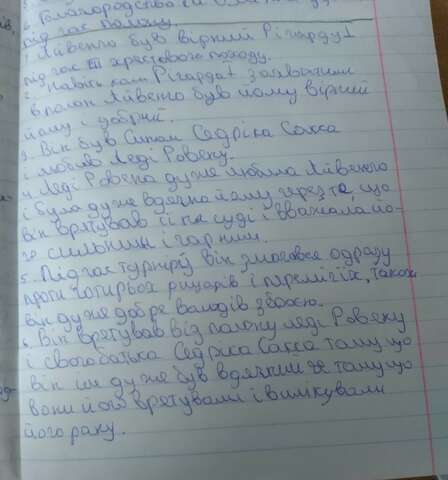 6. Благородство
під час полону.
1 Айвенго був вірний Річарду I
під час III хрестового походу.
2. Навіть коли Річарда I захватили
в полон Айвенго був йому вірний
йому і добрий.
3. Він був сином Седріка Сакса
і любив Леді Ровену.
4 Леді Ровена дуже любила Айвенго
і була дуже вдячна йому через те, що
він врятував її на суді і вважала йо-
го сильним і гарним.
5. Під час турніру він змагався одразу
проти чотирьох рицарів і переміг їх, також
він дуже добре володів зброєю.
6 Він врятував від полону леді Ровену
і свого батька Седріка Сакса тому що
він їм дуже був вдячний за тому що
вони його врятували і вилікували
його рану.